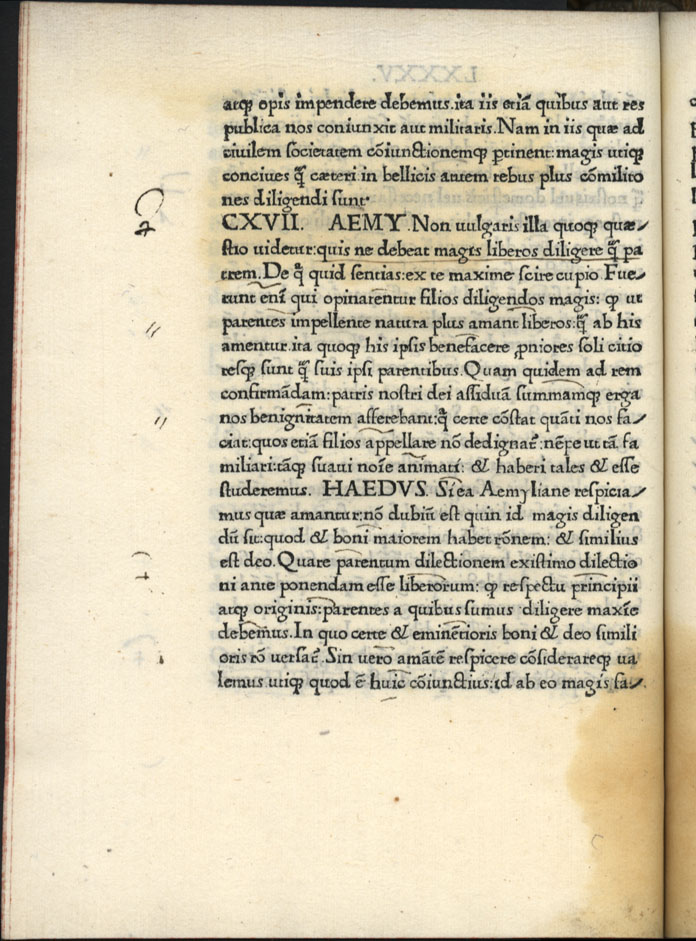 atq; opis impendere debemus.ita iis etiā quibus aut res
publica nos coniunxit aut militaris.Nam in iis quæ ad
ciuilem societatem cōiunctionemq; ꝑtinent: magis utiq;
conciues q̄ cæteri: in bellicis autem rebus plus cōmilito
nes diligendi sunt·
CXVII. AEMY. Non uulgaris illa quoq; quæ/
stio uidetur:quis ne debeat magis liberos diligere q̄ pa
trem.De q̄ quid sentias:ex te maxime scire cupio. Fue/
runt enī qui opinarentur filios diligendos magis: ꝙ ut
parentes impellente natura plus amant liberos:q̄ ab his
amentur.ita quoq; his ipsis benefacere ꝓniores soli citio
resq; sunt q̄ suis ipsi parentibus.Quam quidem ad rem
confirmādam:patris nostri dei assiduā summamq; erga
nos benignitatem afferebant:q̄ certe cōstat quāti nos fa/
ciat:quos etiā filios appellare nō dedignat̄: nēpe ut tā fa
miliari:tāq; suaui noīe animati: & haberi tales & esse
studeremus. HAEDVS. Si ea Aemyliane respicia/
mus quæ amantur:nō dubiū est quin id magis diligen
dū sit:quod & boni maiorem habet rōnem: & similius
est deo.Quare parentum dilectionem existimo dilectio
ni ante ponendam esse liberorum: ꝙ respectu principii
atq; originis:parentes a quibus sumus diligere maxīe
debemus.In quo certe & eminētioris boni & deo simili
oris rō uersat̄. Sin uero amātē respicere cōsiderareq; ua
lemus utiq; quod ē huic cōiunctius:id ab eo magis fa/